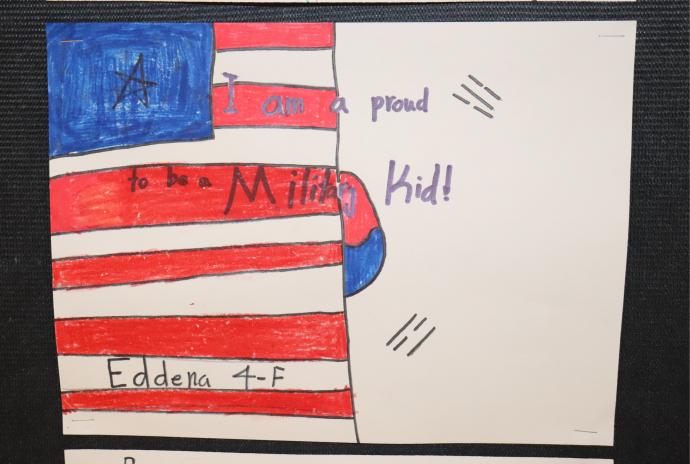 I am a proud
to be a Military Kid!
Eddena 4-F